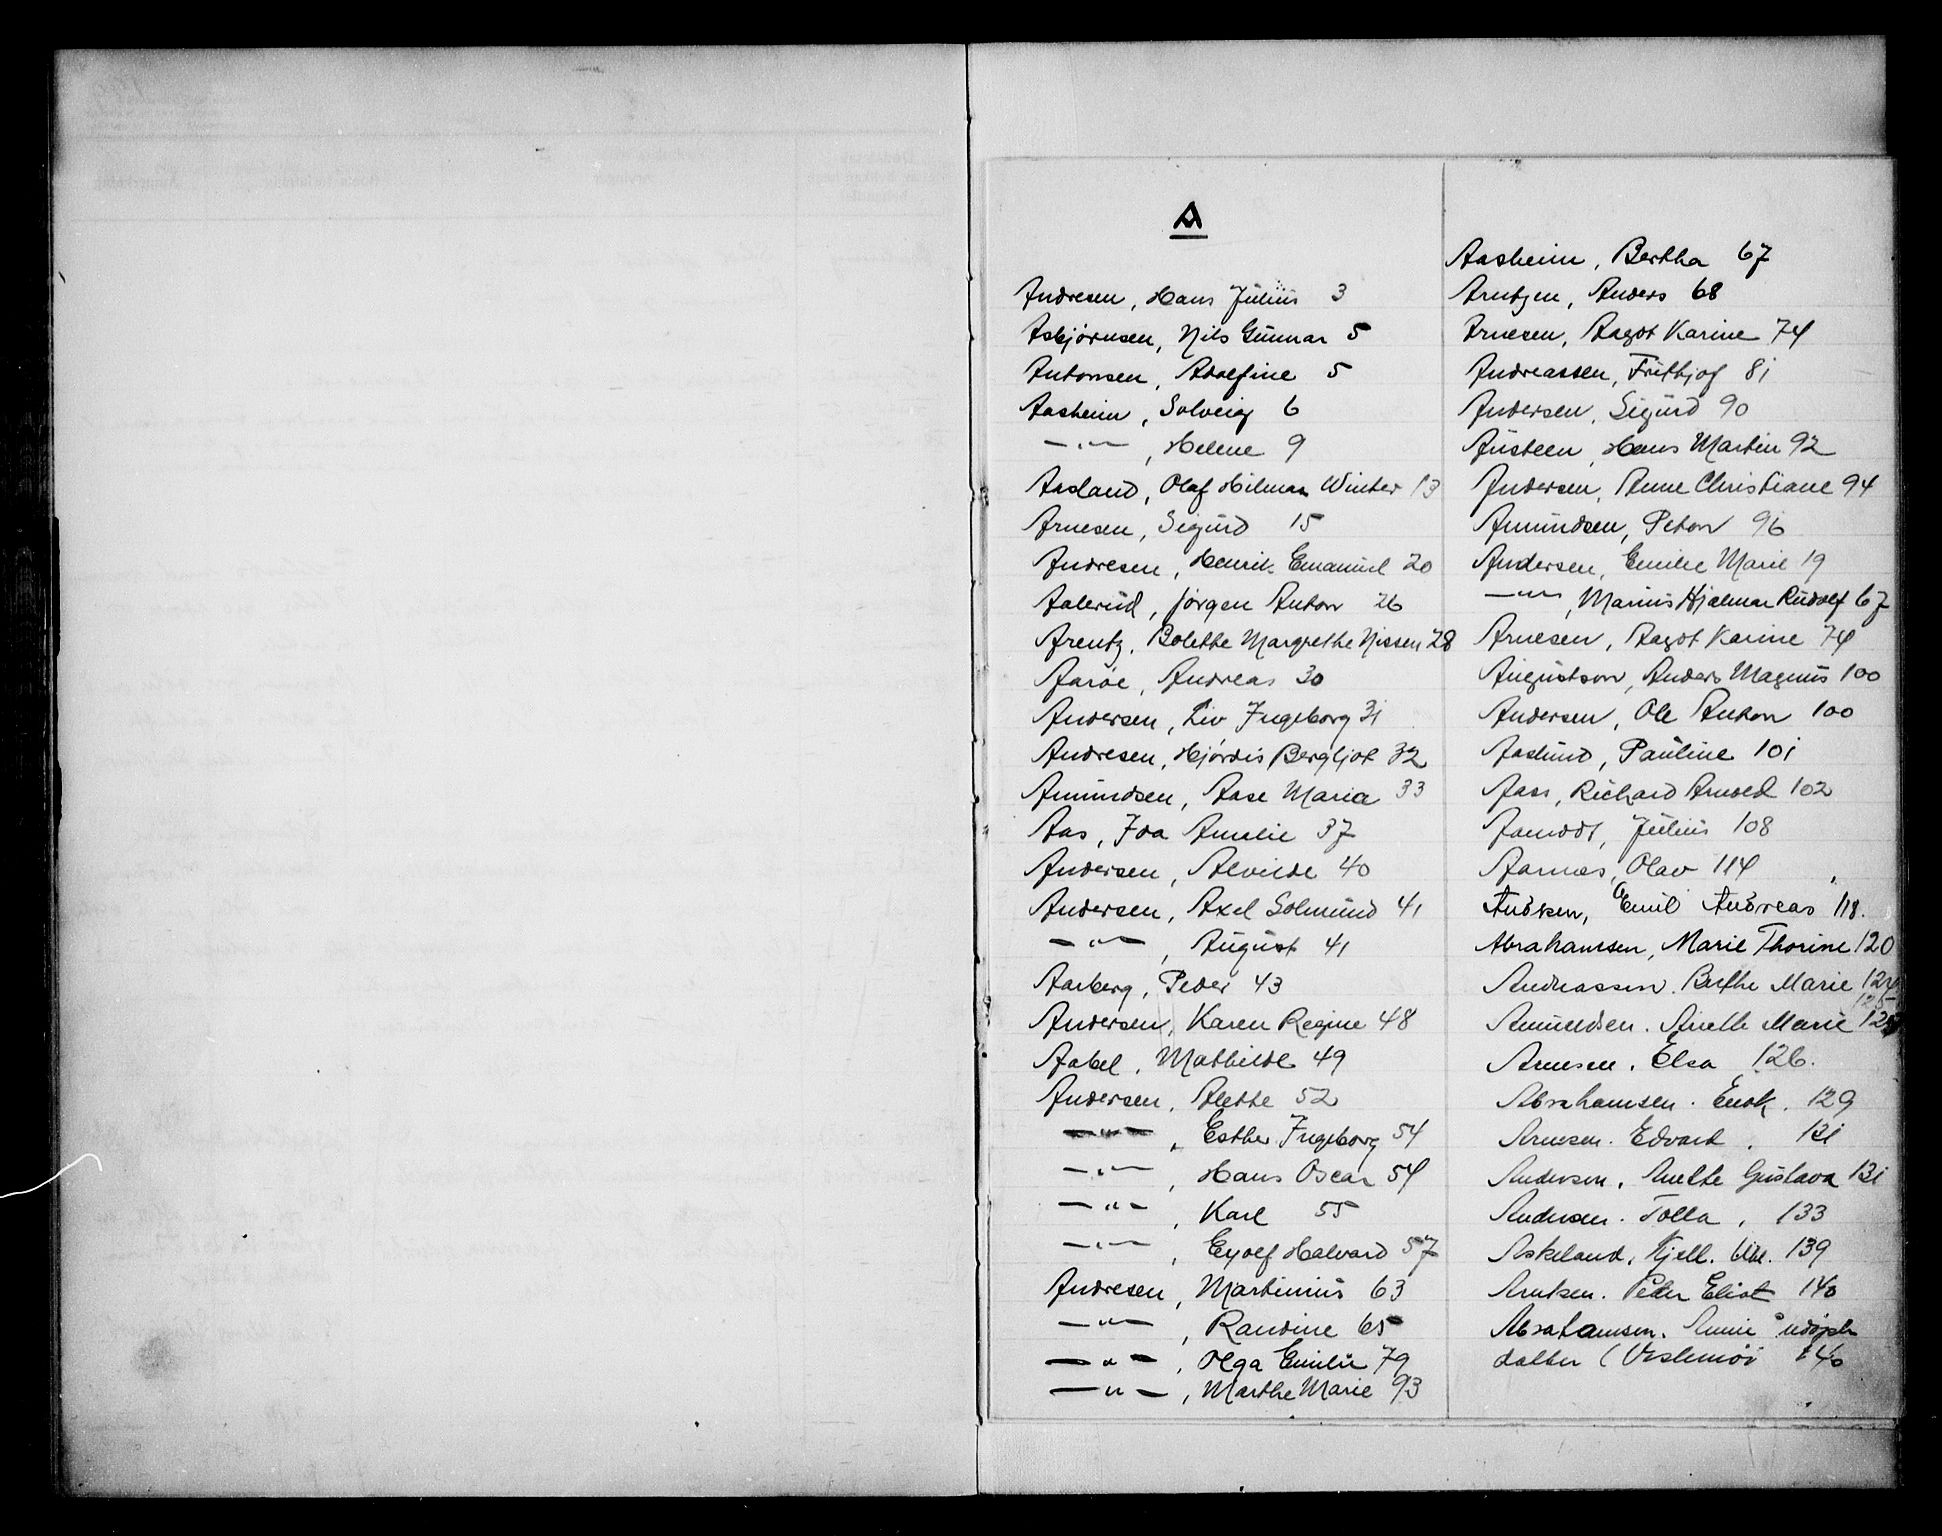 A
Andresen, Hans Julius 3
Asbjørnsen, Nils Gunnar 5
Antonsen, Adolfine 5
Aasheim, Solveig 6
—"—, Helene 9
Aasland, Olaf Hilmar Winter 13
Arnesen, Sigurd 15
Andresen, Henrik Emanuel 20
Aalerud, Jørgen Anton 26
Arentz, Bolette Margrethe Nissen 28
Aarøe, Andreas 30
Andersen, Liv Ingeborg 31
Andresen, Hjørdis Bergljot 32
Amundsen, Aase Maria 33
Aas, Ida Amalie 37
Andersen, Alvilde 40
Andersen, Axel Solmund 41
—"—, August 41
Aarberg, Peder 43
Andersen, Karen Regine 48
Aabel, Mathilde 49
Andersen, Alette 52
—"—, Esther Ingeborg 54
—"—, Hans Oscar 54
—"—, Karl 55
—"—, Eyolf Halvard 57
Andresen, Martinius 63
—"—, Randine 65
—"—, Olga Emilie 79
—"—, Marthe Marie 93
Aasheim, Bertha 67
Arntzen, Anders 68
Arnesen, Aagot Karine 74
Andreassen, Frithjof 81
Andersen, Sigurd 90
Austeen, Hans Martin 92
Andersen, Anne Christiane 94
Amundsen, Petter 96
Andersen, Emilie Marie 19
—"—, Marius Hjalmar Rudolf 67
Arnesen, Aagot Karine 74
Augustson, Anders Magnus 100
Andersen, Ole Anton 100
Aaslund, Pauline 101
Aass, Richard Arnold 102
Aamodt, Julius 108
Aarnæs, Olav 114
Andersen, Emil Andreas 118.
Abrahamsen, Marie Thorine 120
Andreassen. Berthe Marie 124
125
Amundsen. Anette Marie
Arnesen. Elsa 126.
Abrahamsen. Enok. 129
Arnesen. Edvard. 131
Andersen, Anette Gustava 131
Andersen. Tolla, 133
Askeland, Kjell. Ulbl. 139
Arntsen. Peder Eliot 140
Abrahamsen. Annie udøpt
datter (Veslemøi 140